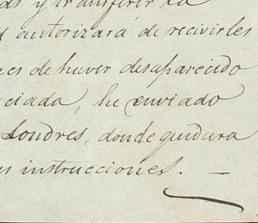 y transferir la
autorizará de recivirles
es de haver desaparecido
ciada, he enviado
Londres, donde quedara
instrucciones. —